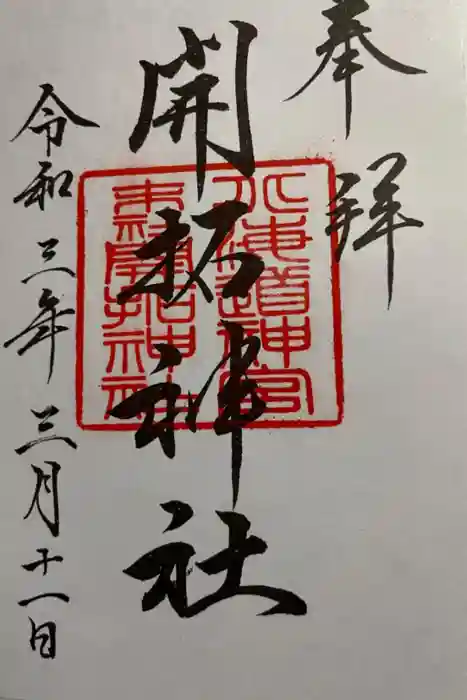 奉拜
開拓神社
北海道神宮
末社開拓神社
令和三年三月十一日